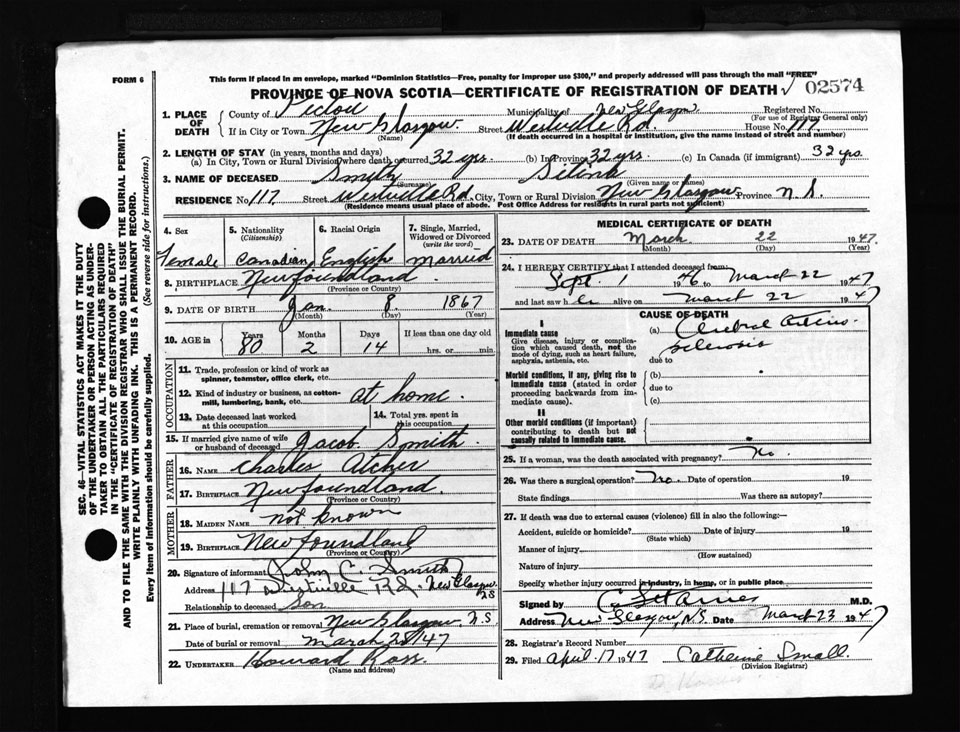 FORM 6
This form if placed in an envelope, marked "Dominion Statistics—Free, penalty for improper use $300," and properly addressed will pass through the mail "FREE"
PROVINCE OF NOVA SCOTIA—CERTIFICATE OF REGISTRATION OF DEATH 02574
1. PLACE OF DEATH County of Pictou Municipality of New Glasgow Registered No.
(For use of Registrar General only)
If in City or Town New Glasgow. Street Westville Rd. House No. 117.
(Name) (If death occurred in a hospital or institution, give the name instead of street and number)
2. LENGTH OF STAY (in years, months and days)
(a) In City, Town or Rural Division where death occurred 32 yrs. (b) In Province 32 yrs. (c) In Canada (if immigrant) 32 yrs
3. NAME OF DECEASED Smith
(Surname) (Given name or names)
RESIDENCE No 117. Street Westville Rd. City, Town or Rural Division New Glasgow Province N.S.
(Residence means usual place of abode. Post Office Address for residents in rural parts not sufficient)
4. Sex 5. Nationality (Citizenship) 6. Racial Origin 7. Single, Married, Widowed or Divorced (write the word)
Female Canadian English Married
8. BIRTHPLACE Newfoundland
(Province or Country)
9. DATE OF BIRTH Jan. 8. 1867
(Month) (Day) (Year)
10. AGE in Years Months Days If less than one day old
80 2 14 hrs. or min.
OCCUPATION
11. Trade, profession or kind of work as spinner, teamster, office clerk, etc.
12. Kind of industry or business, as cotton-mill, lumbering, bank, etc. at home.
13. Date deceased last worked at this occupation
14. Total yrs. spent in this occupation
15. If married give name of wife or husband of deceased Jacob Smith.
FATHER
16. NAME Charles Atcher
17. BIRTHPLACE Newfoundland.
(Province or Country)
MOTHER
18. MAIDEN NAME not known
19. BIRTHPLACE Newfoundland
(Province or Country)
20. Signature of informant John C. Smith
Address 117 Westville Rd. New Glasgow NS
Relationship to deceased Son
21. Place of burial, cremation or removal New Glasgow, N.S.
Date of burial or removal March 25/47
22. UNDERTAKER Howard Ross.
(Name and address)
MEDICAL CERTIFICATE OF DEATH
23. DATE OF DEATH March 22 1947.
(Month) (Day) (Year)
24. I HEREBY CERTIFY that I attended deceased from:
Sept. 1 1946 to March 22 1947
and last saw her alive on March 22 1947
CAUSE OF DEATH
I
Immediate cause
Give disease, injury or complication which caused death, not the mode of dying, such as heart failure, asphyxia, asthenia, etc.
(a) Cerebral Arterio-
sclerosis
due to
Morbid conditions, if any, giving rise to immediate cause (stated in order proceeding backwards from immediate cause).
(b)
due to
(c)
II
Other morbid conditions (if important) contributing to death but not causally related to immediate cause.
25. If a woman, was the death associated with pregnancy? No.
26. Was there a surgical operation? No. Date of operation 19
State findings Was there an autopsy?
27. If death was due to external causes (violence) fill in also the following:—
Accident, suicide or homicide? Date of injury 19
(State which)
Manner of injury
(How sustained)
Nature of injury
Specify whether injury occurred in industry, in home, or in public place
Signed by M.D.
Address New Glasgow, N.S. Date March 23 1947
28. Registrar's Record Number
29. Filed April 17 1947 Catherine Small.
(Division Registrar)
SEC. 46—VITAL STATISTICS ACT MAKES IT THE DUTY
OF THE UNDERTAKER OR PERSON ACTING AS UNDER-
TAKER TO OBTAIN ALL THE PARTICULARS REQUIRED
IN THE "CERTIFICATE OF REGISTRATION OF DEATH"
AND TO FILE THE SAME WITH THE DIVISION REGISTRAR WHO SHALL ISSUE THE BURIAL PERMIT.
WRITE PLAINLY WITH UNFADING INK. THIS IS A PERMANENT RECORD.
Every item of information should be carefully supplied. (See reverse side for instructions.)